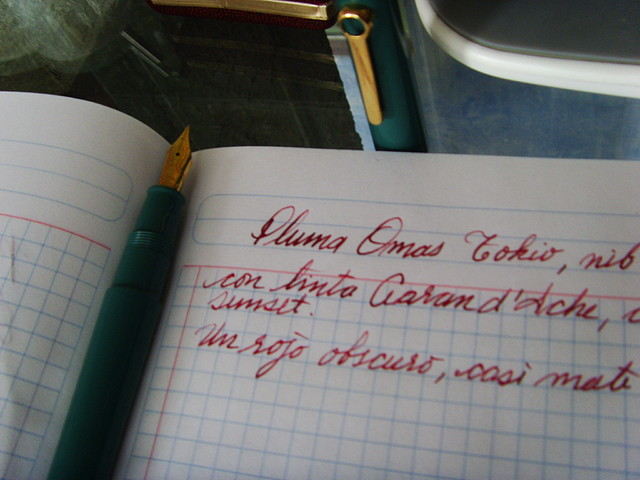 Pluma Omas Tokio, nib
con tinta Caran d'Ache, c
sunset.
Un rojo obscuro, casi mate